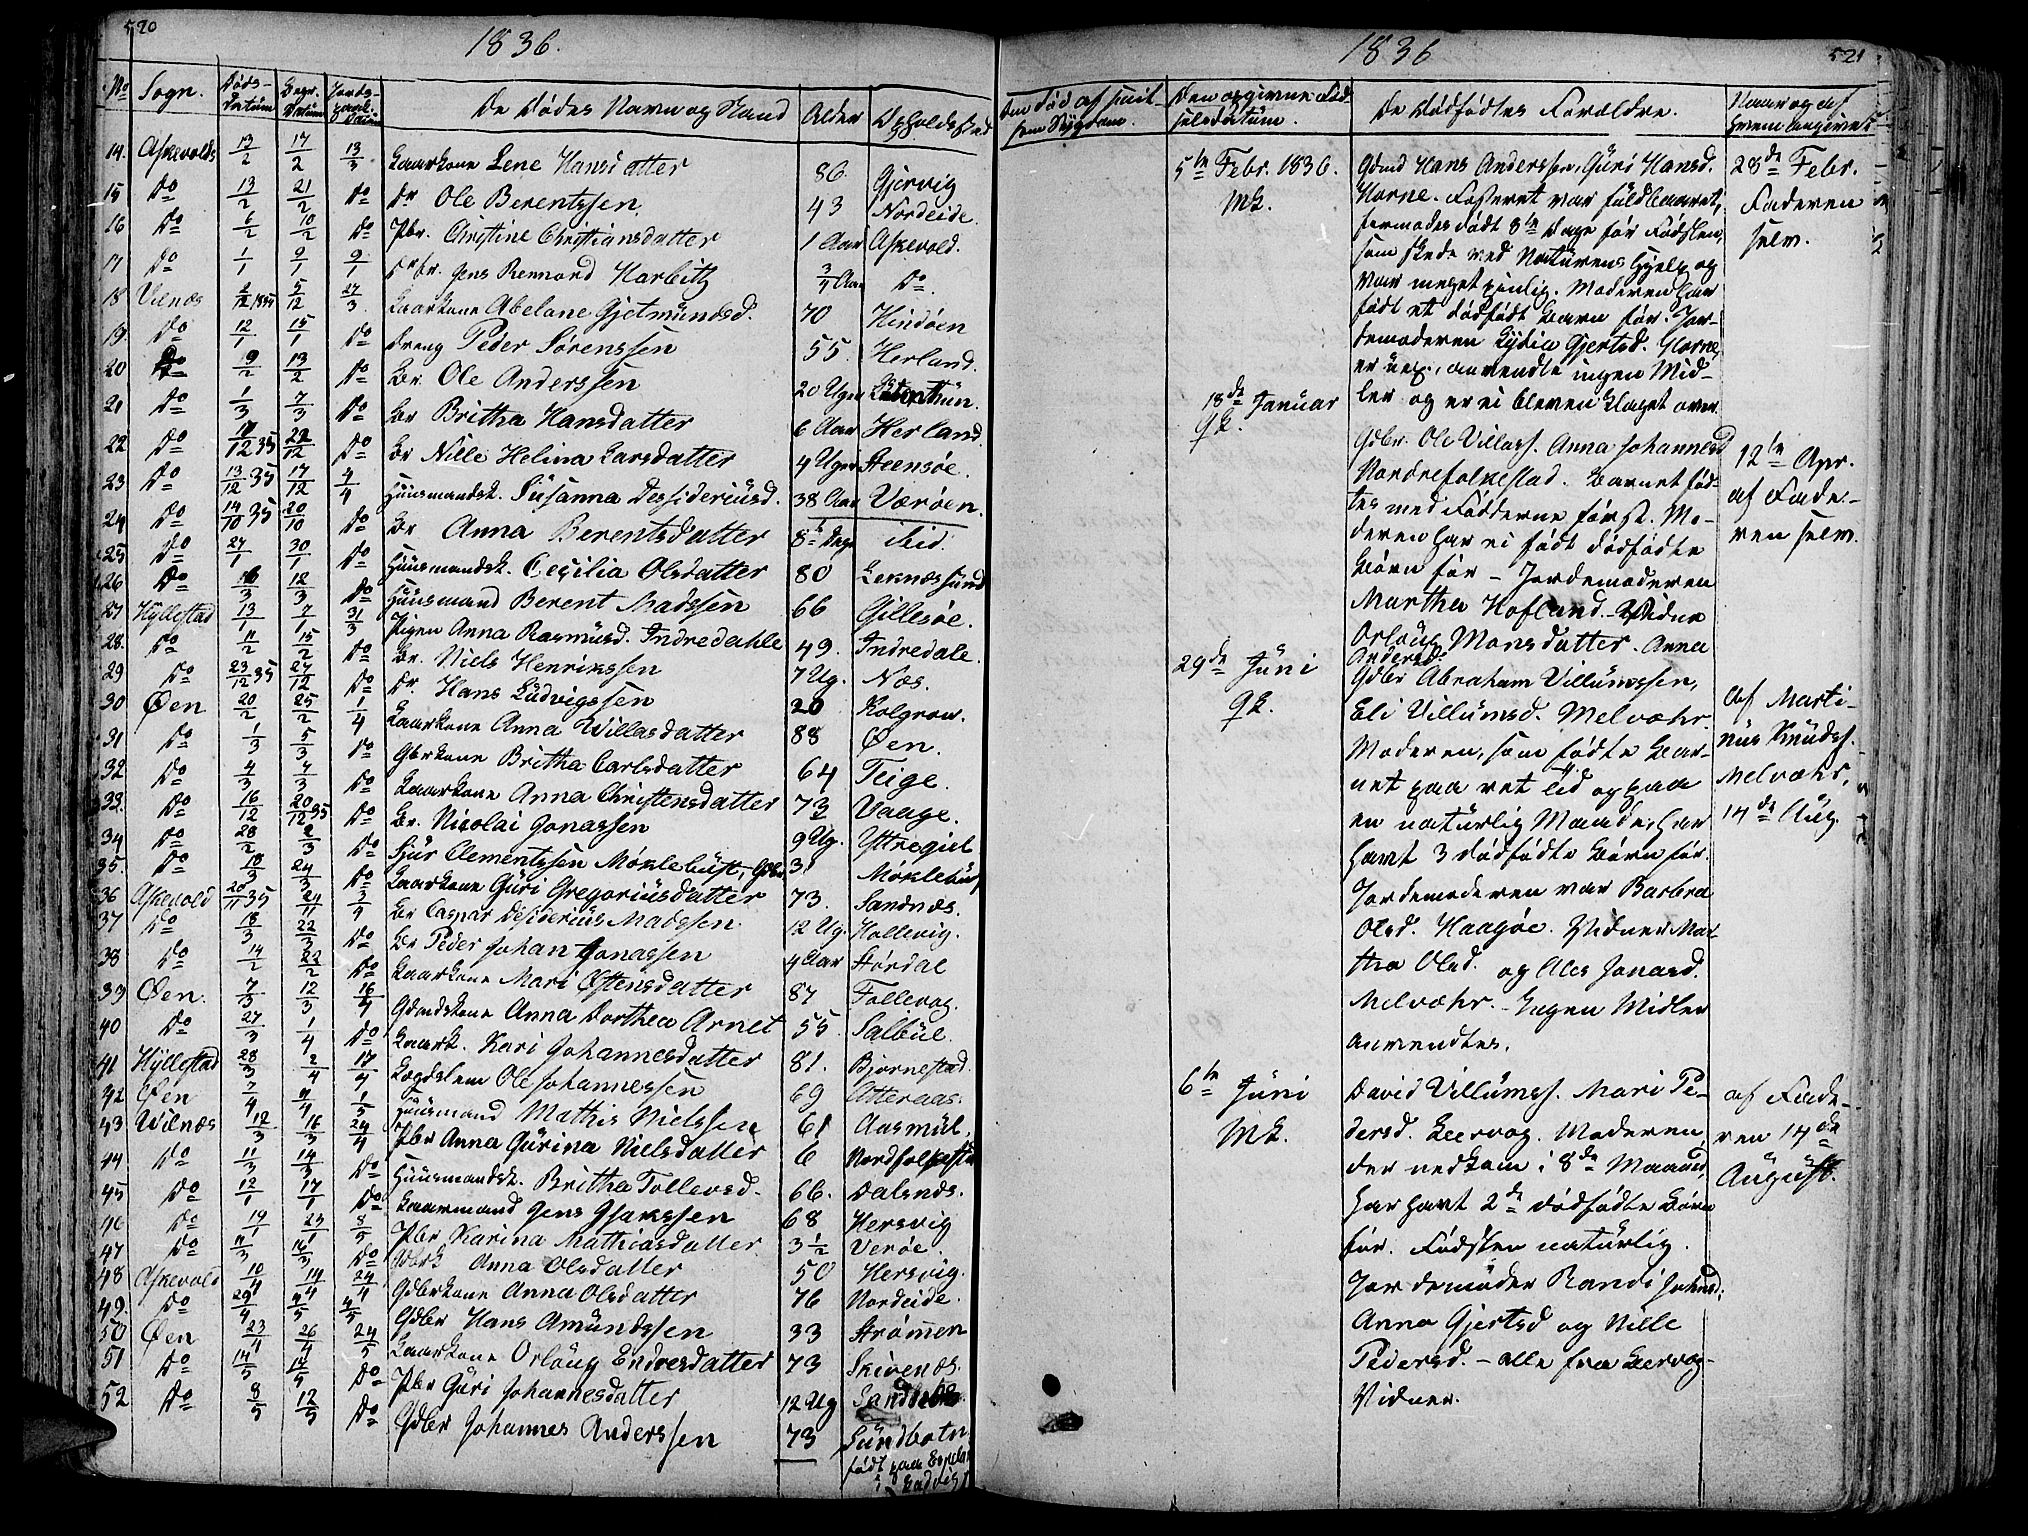 520
1836.
No Sogn. Døds-Datum Begr. Datum Jords-paak. Datum De Dødes Navn og Stand Alder Opholdssted
14. Askevold 13/2 17/2 13/3 Kaarkone Lene Hansdatter 86 Gjervig
15 Do 13/2 21/2 Do Dr Ole Berentssen 43 Nordeide.
16 Do 6/2 10/2 Do Pbr. Christine Christiansdatter 1 Aar Askevold.
17 Do 1/1 9/1 9/1 Drbr. Jens Rennord Harbitz 3/4 Aar Do.
18 Vilnæs 2/12 1835 5/12 27/3 Kaarkone Abelone Gjetmundsd. 70 Hindøen
19. Do 12/1 15/1 Do Dreng Peder Sørenssen 55. Herland.
20 Do 9/2 13/2 Do Br. Ole Anderssen 20 Uger
21 Do 1/3 7/3 Do Br Britha Hansdatter 6 Aar Herland.
22 Do 12 35 22/12 Do Br Nille Helina Larsdatter 4 Uger Steensøe.
23 Do 13/12 35 17/12 4/4 Huusmandsk. Susanna Dessideriusd. 38 Aar Værøen.
24 Do 14/10 35 20/10 Do Br Anna Berentsdatter 8te Dage Seid.
25 Do 27/1 30/1 Do Huusmandsk. Cecilia Olsdatter 80 Leknessund
26 Do 3 12/3 Do Huusmand Berent Madssen 66 Gillesøe.
27 Hyllestad 13/1 7/1 31/3 Pigen Anna Rasmusd. Indredahle 49. Indredale.
28. Do 11/2 15/2 Do Br. Niels Henrikssen 7 Ug. Næs.
29 Do 23/12 35 27/12 Do Dr. Hans Ludvigssen 20 Kolgrov.
30 Øen 20/2 25/2 1/4 Kaarkone Anna Willasdatter 88 Øen.
31 Do 1/3 5/3 Do Gbrkone Britha Carlsdatter 64 Teige.
32 Do 4/3 7/3 Do Kaarkone Anna Christensdatter 73 Vaage.
33. Do 16/12 20/12 35 Do Br. Nicolai Jonassen 9 Ug. Yttregiel
34 Do 28/2 2/3 Do Sjur Clementssen Møklebust, Gbr 31 Møklebust
35. Do 18/3 24/3 Do Kaarkone Guri Gregoriusdatter 73. Sandnæs.
36 Askevold 20/11 35 24/11 3/4 Br Caspar Desiderius Madssen 12 Ug. Hollevig.
37 Do 18/3 22/3 Do Br Peder Johan Jonassen 4 Aar Størdal
38 Do 14/2 22/2 Do Kaarkone Mari Østensdatter 87 Tollevog.
39 Øen. 7/3 12/3 16/4 Gdmdskone Anna Dorthea Arnet 55 Salbul.
40 Do 27/3 1/4 Do Kaark. Kari Johannesdatter 81. Bjørnestad.
41 Hyllestad 28/3 2/4 17/4 Lægdslem Ole Johannessen 69 Atteraas.
42 Øen 7/4 4 1/5 Huusmand Mathis Nielssen 61 Aasmul.
43 Vilnæs 12/3 16/3 24/4 Pbr Anna Gurina Nielsdatter 6 Nordfolkestad
44 Do 11/3 14/3 Do Huusmandsk. Britha Tollevsd. 66. Dalsnæs.
45 Do 12/1 17/1 Do Kaarmand Jens Isakssen 68 Hersvig
46 Do 19/1 23/1 8/5 Pbr Karina Mathiasdatter 3 1/2 Verøe.
47 Do 11/3 16/3 Do Anna Olsdatter 50 Hersvig.
48 Askevold 10/4 14/4 24/4 Gdbrkone Anna Olsdatter 76 Nordeide.
49. Do 29/4 4/5 4/5 Gdbr Hans Amundssen 33 Strømen
50 Øen 23/4 26/4 24/5 Kaarkone Orloug Endresdatter 73 Skivenæs.
51 Do 14/5 14/5 Do Pbr Guri Johannesdatter 12 Ug
52 Do 8/5 12/5 Do Gdbr Johannes Anderssen 73 Sundbotn
født paa
1836
521
Om Død af smitsom Sygdom. Den opgivne Fødselsdatum. De Dødfødtes Forældre. Naar og af hvem angivet
5te Febr. 1836.
Mk.
Gdmd Hans Anderssen, Guri Hansd.
Horne. Fosteret var fuldbaaret,
formodes død 8te Dage før Fødslen,
som skede ved Naturens Hjelp og
var meget pinlig. Moderen har
født et dødfødt Barn før. Jor-
demoderen Lydia Gjertsd. Horne,
er uex., anvendte ingen Mid-
ler og er ei bleven klaget over
28de Febr.
Faderen
selv.
18de Januar
Qk.
Gdbr. Ole Villass. Anna Johannesd
Nordrefolkestad. Barnet fød-
tes med Fødderne først. Mo-
deren har ei født dødfødte
Børn før – Jordemoderen
Martha Hofland. Vidner
Orloug Monsdatter. Anna
Andersd.
12te Apr.
af Fade-
ren selv.
29de Juni
Qk.
Gdbr Abraham Villumssen,
Eli Villumsd. Melvæhr.
Moderen, som fødte Bar-
net paa ret Tid og paa
en naturlig Maade, har
havt 3 dødfødte Børn før.
Jordemoderen var Barbra
Olsd. Haagøe. Vidner Mar-
tha Olsd. og Ales Jonasd.
Melvæhr. Ingen Midler
anvendtes.
af Marti-
nus Knuds.
Melvæhr,
14de Aug.
6te Juni
Mk.
David Villums. Mari Pe-
dersd. Leervog. Moderen,
der nedkom i 8de Maaned,
har havt 2de dødfødte Børn
før. Fødslen naturlig.
Jordemoder Randi Johnsd.
Anna Gjertsd og Nille
Pedersd. – alle fra Leervog –
Vidner.
af Fade-
ren 14de
August.